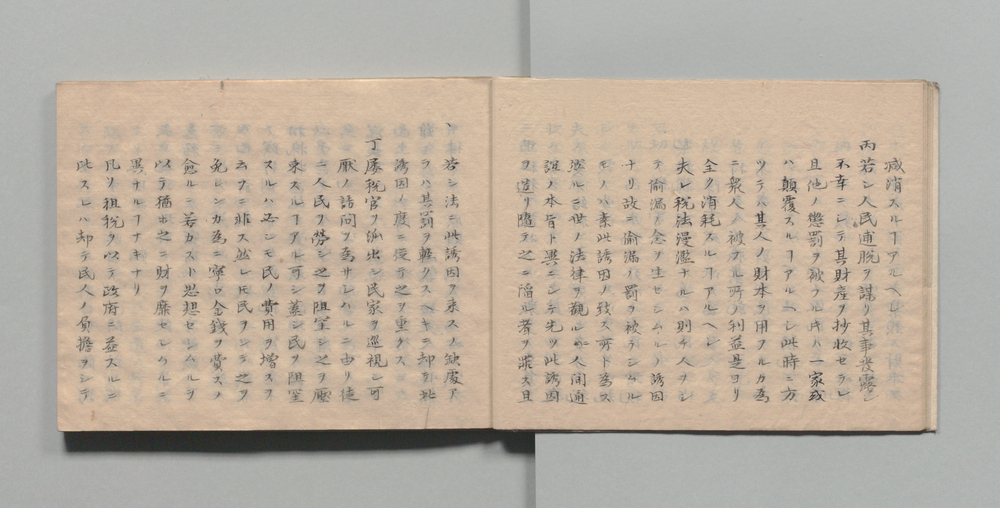 減消スルヿアルヘシ
丙若シ人民逋脱ヲ謀リ其事発露シ
不幸ニシテ其財産ヲ抄收セラレ
且他ノ懲罰ヲ被ラル片ハ一家或
ハ顛覆スルヿアルヘシ此時ニ方
ツテハ其人ノ財本ヲ用フルカ為
ニ衆人ノ被フル所ノ利益是ヨリ
全ク消耗スルヿアルヘシ
夫レ税法漫濫ナルハ則チ人ヲシ
テ偷漏ノ念ヲ生セシムルノ誘因
ナリ故ニ偷漏ノ罰ヲ被ラシムル
モノハ素此誘因ノ致ス所ト為ス
然ルニ世ノ法律ヲ観レハ人間通
誼ノ本旨ト異ニシテ先ツ此誘因
ヲ造リ随テ之ニ陥ル者ヲ罪ス且
若シ法ニ此誘因ヲ来スノ缺處ア
ラハ其罰ヲ軽クスヘキニ却テ其
誘因ノ度ニ従テ之ヲ重クス
丁屡税官ヲ派出シ民家ヲ巡視シ可
厭ノ詰問ヲ為サシハルニ由リ徒
ニ人民ヲ勞シ之ヲ阻窒シ之ヲ壓
束スルヿアル可シ蓋シ民ヲ阻窒
スルハ必シモ民ノ費用ヲ增スヲ
云フニ非ス然レ𪜈民ヲシテ之ヲ
免レンカ為ニ寧ロ金銭ヲ費スノ
愈ルニ若カスト思想セシムルヲ
以テ猶出之ニ財ヲ糜セシムルニ
異ナルヿナキナリ
凡ソ租税ヲ以テ政府ニ益スルニ
此スレハ却テ民人ノ負擔ヲシテ